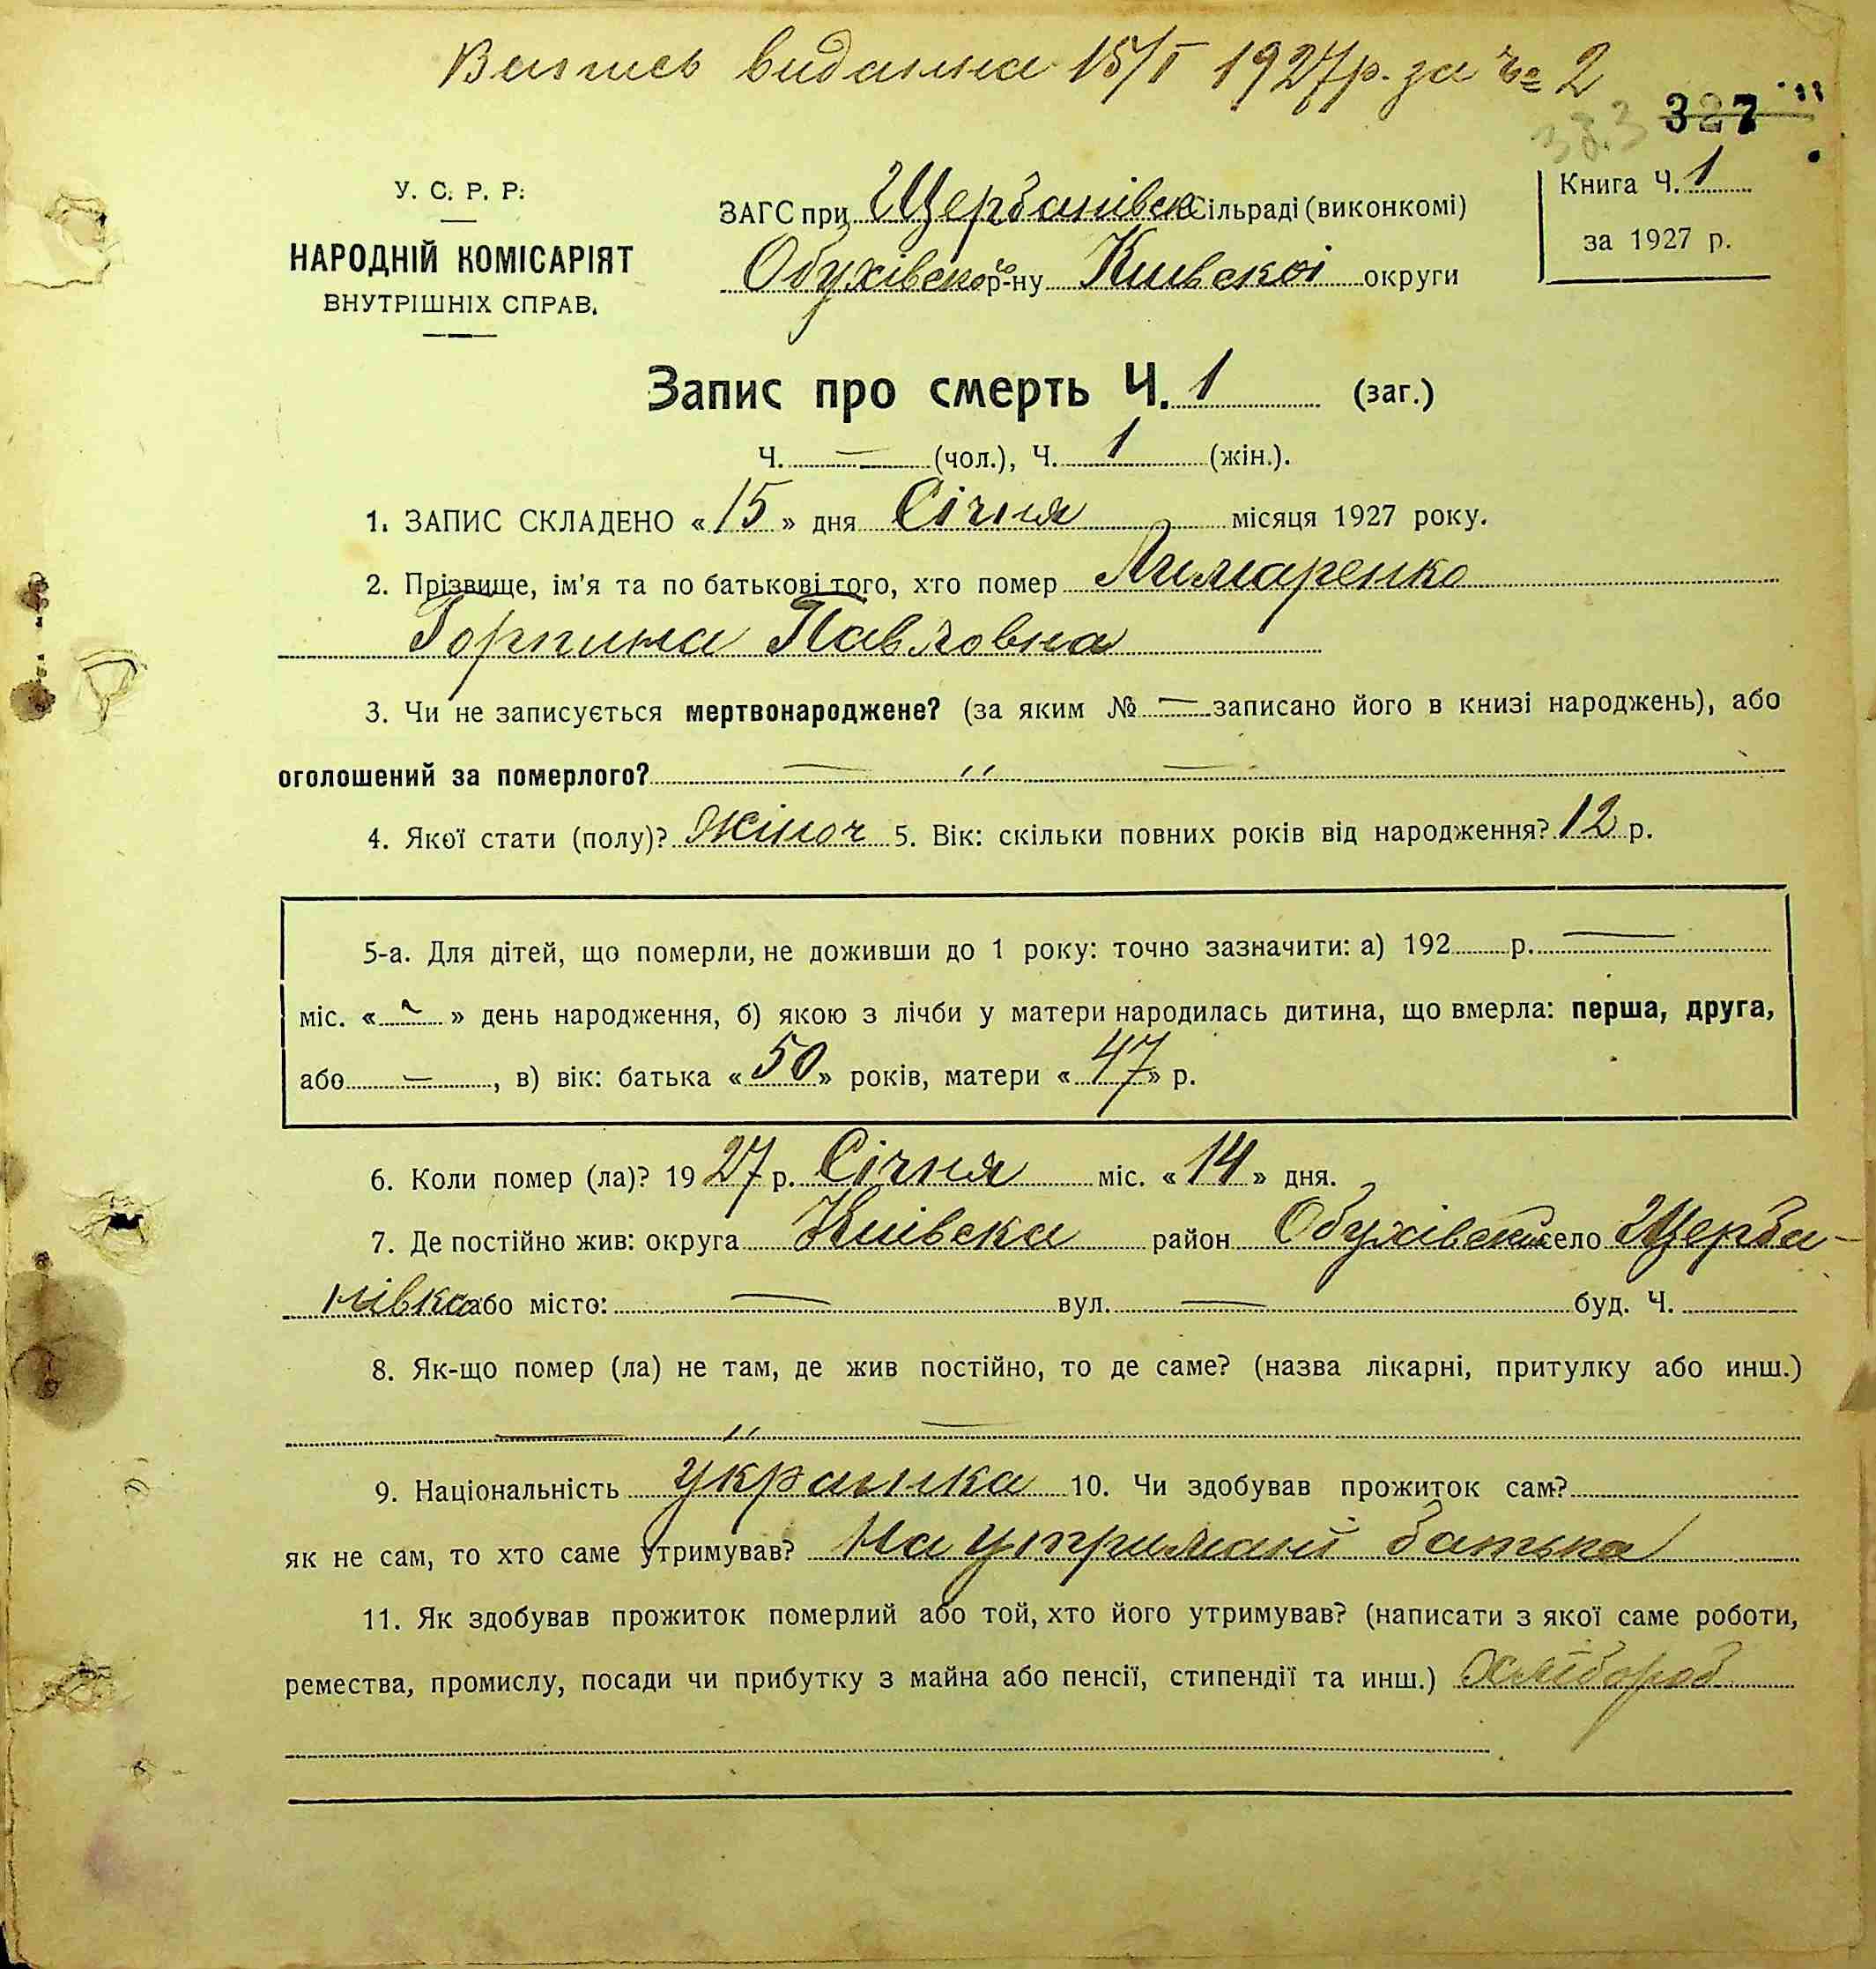 Випись видана 15/I 1927р. за № 2
383 327
У. С. Р. Р.
НАРОДНІЙ КОМІСАРІЯТ
ВНУТРІШНІХ СПРАВ.
ЗАГС при Щербанівск Сільраді (виконкомі)
Обухівского р-ну Київскої округи
Книга Ч. 1
за 1927 р.
Запис про смерть Ч. 1 (заг.)
Ч. — (чол.), Ч. 1 (жін.).
1. ЗАПИС СКЛАДЕНО «15» дня Січня місяця 1927 року.
2. Прізвище, ім'я та по батькові того, хто помер Лимаренко
Горпина Павловна
3. Чи не записується мертвонароджене? (за яким № — записано його в книзі народжень), або
оголошений за померлого? — ,, —
4. Якої стати (полу)? жіноч 5. Вік: скільки повних років від народження? 12 р.
5-а. Для дітей, що померли, не доживши до 1 року: точно зазначити: а) 192 р. —
міс. « » день народження, б) якою з лічби у матери народилась дитина, що вмерла: перша, друга,
або —, в) вік: батька «50» років, матери «47» р.
6. Коли помер (ла)? 1927 р. Січня міс. «14» дня.
7. Де постійно жив: округа Київска район Обухівский село Щерба-
нівка або місто: — вул. — буд. Ч.
8. Як-що помер (ла) не там, де жив постійно, то де саме? (назва лікарні, притулку або инш.)
— ,, —
9. Національність українка 10. Чи здобував прожиток сам?
як не сам, то хто саме утримував? На утримані батька
11. Як здобував прожиток померлий або той, хто його утримував? (написати з якої саме роботи,
ремества, промислу, посади чи прибутку з майна або пенсії, стипендії та инш.) Хлібороб